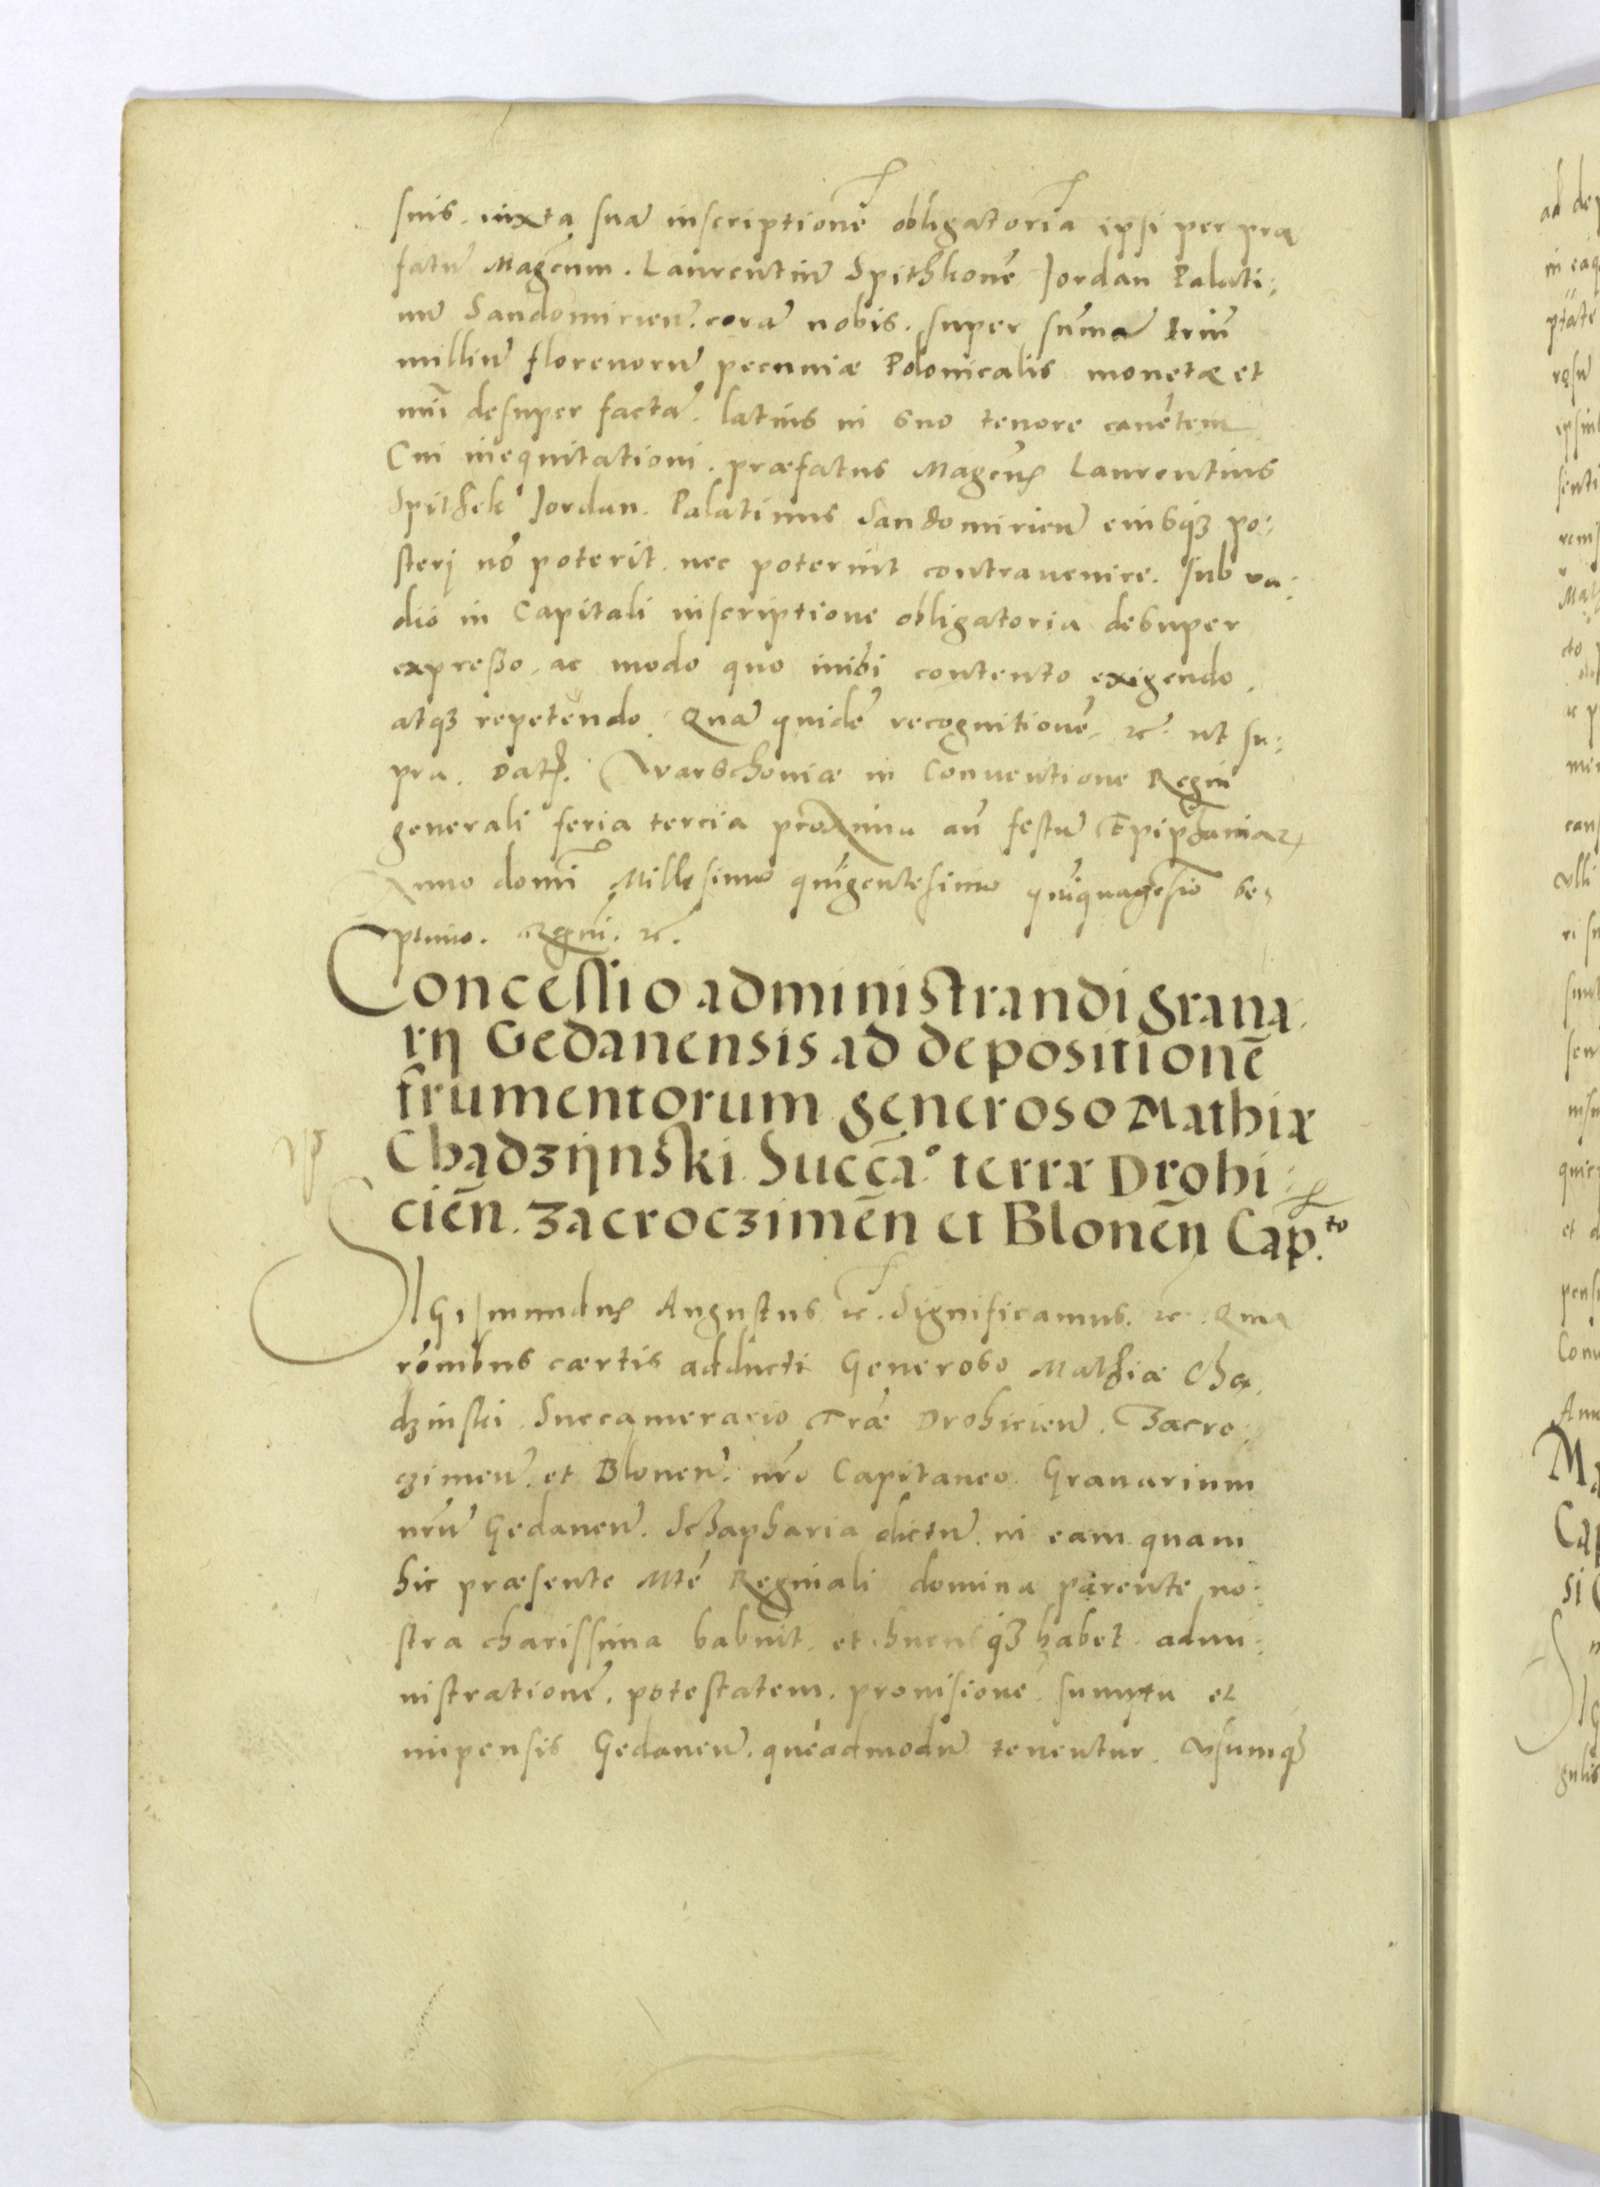 suis. iuxta suā inscriptionē obligatoriā ipsi per præ
fatū Magcum. Laurentiū Spithkonē Jordan Palati:
nū Sandomirien̄. corā nobis. super sūmā triū
milliū florenorū pecuniæ Polonicalis monetæ et
nūi desuper factā. latius in suo tenore canētem
Cui inequitationi. præfatus Magcus Laurentius
Spithek Jordan. Palatinus Sandomirien̄ eiusqȝ po:
sterj nō poterit. nec poterint contrauenire. sub va:
dio in Capitali inscriptione obligatoria desuper
expresso. ac modo quo inibi contento exigendo.
atqȝ repetendo. Quā quidē recognitionē. ꝛc. ut su:
pra. Dat. Warschouiæ in Conuentione Regni
generali feria tercia proxima an̄ festū Epiphaniaꝝ
Anno domī Millesimo quīgentesimo quīquagesīo se:
ptimo. Regni. ꝛc.
Concessio administrandi grana.
rij Gedanensis ad depositionē
frumentorum generoso Mathiæ
Chądzijnski Succa.° terræ Drohi:
cien̄. Zacroczimen̄ et Blonen̄ Cap.to
SIGismundus Augustus ꝛc. Significamus. ꝛc. Quia
rōnibus cærtis adducti Generoso Mathiæ Chą,
dzinski. Succamerario Træ Drohicien̄. Zacro,
czimen̄. et Blonen̄. nr̄o Capitaneo. Granarium
nr̄ū Gedanen̄. Schapharia dictū. in eam quam
hic præsente Mtē Reginali domina parente no:
stra charissima habuit. et hucusqȝ habet. admi:
nistrationē. potestatem. prouisionē. sumptu et
impensis Gedanen̄. quēadmodū tenentur. Vsumqȝ